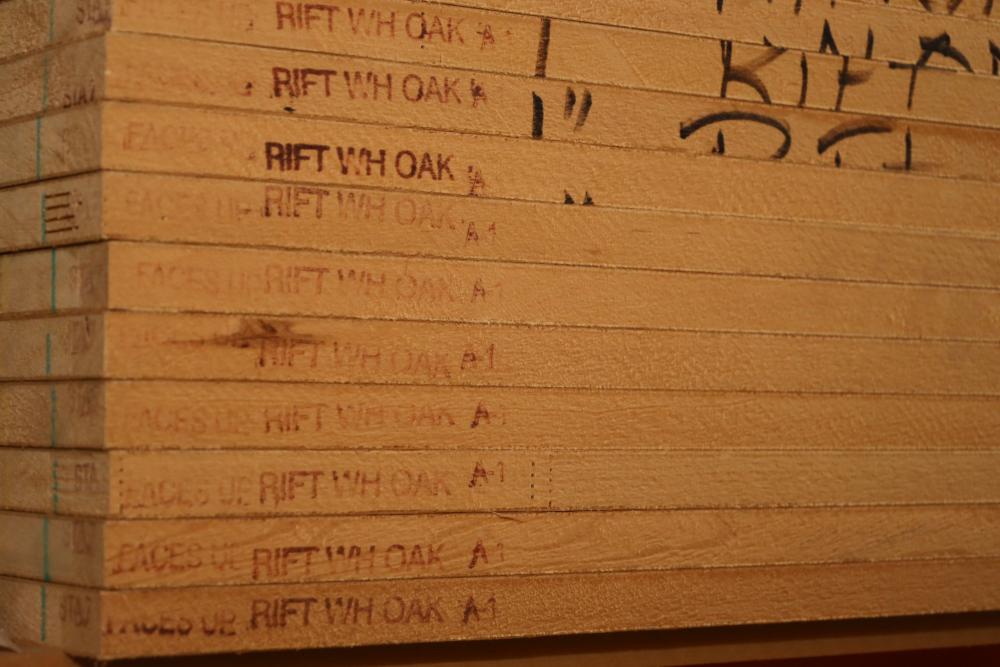 RIFT WH OAK A
RIFT WH OAK A
RIFT
1"
RIFT WH OAK A
FACES UP RIFT WH OAK A-1
FACES UP RIFT WH OAK A-1
RIFT WH OAK A-1
FACES UP RIFT WH OAK A-1
FACES UP RIFT WH OAK A-1
FACES UP RIFT WH OAK A-1
FACES UP RIFT WH OAK A-1